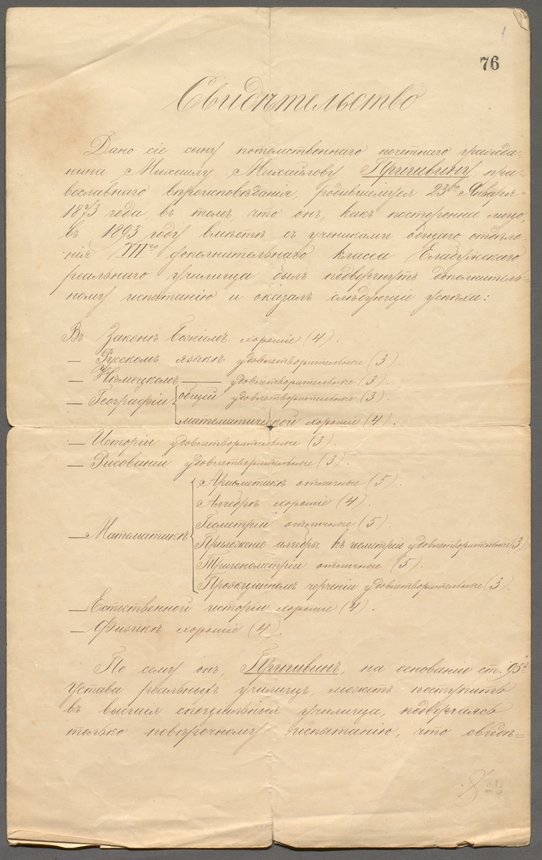 76
Свидѣтельство
Дано сіе сыну потомственнаго почетнаго гражда-
нина Михаилу Михайлову Пришвину пра-
вославнаго вѣроисповѣданія, родившемуся 23го Января
1873 года въ томъ, что онъ, какъ постороннее лицо,
въ 1893 году вмѣстѣ съ учениками общаго отдѣле-
нія VIIго дополнительнаго класса Елабужскаго
реальнаго училища былъ подвергнутъ дополнитель-
ному испытанію и оказалъ слѣдующіе успѣхи:
Въ Законѣ Божіемъ хорошіе (4).
— Русскомъ языкѣ удовлетворительные (3)
— Нѣмецкомъ — удовлетворительные (3).
— Географіи общей удовлетворительные (3).
математической хорошіе (4).
— Исторіи удовлетворительные (3).
— Рисованіи удовлетворительные (3).
Ариѳметикѣ отличные (5).
Алгебрѣ хорошіе (4).
Геометріи отличные (5)
— Математикѣ
Приложеніи алгебры къ геометріи удовлетворительные (3)
Тригонометріи отличные (5).
Проекціонномъ черченіи удовлетворительные (3)
— Естественной исторіи хорошіе (4).
— Физикѣ хорошіе (4).
По сему онъ Пришвинъ, на основаніи ст. 95й
Устава реальныхъ училищъ, можетъ поступить
въ высшія спеціальныя училища, подвергаясь
только повѣрочному испытанію, что свидѣ-